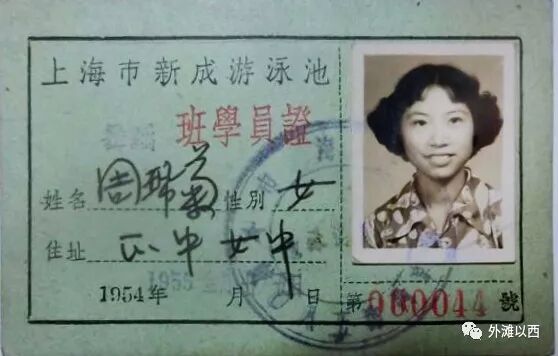 上海市新成游泳池
班學員證
姓名 周琳 性別 女
住址 正中女中
1954年 月 日
第000044號
外滩以西